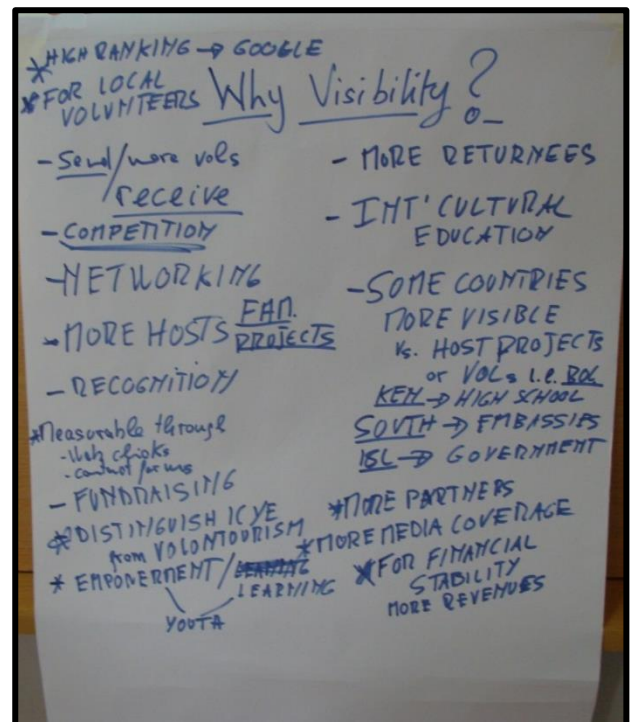 *HIGH RANKING → GOOGLE
*FOR LOCAL
VOLUNTEERS
Why Visibility?
- Send/more vols
/receive
- COMPETITION
- NETWORKING
- MORE HOSTS FAM.
PROJECTS
- RECOGNITION
*Measurable through
- Web clicks
- contact forms
- FUNDRAISING
*DISTINGUISH ICYE
from VOLONTOURISM
* EMPOWERMENT/LEARNING
LEARNING
YOUTH
- MORE RETURNEES
- INT'CULTURAL
EDUCATION
- SOME COUNTRIES
MORE VISIBLE
vs. HOST PROJECTS
or VOLs i.e. BOL
KEN → HIGH SCHOOL
SOUTH → EMBASSIES
ISL → GOVERNMENT
*MORE PARTNERS
*MORE MEDIA COVERAGE
*FOR FINANCIAL
STABILITY
MORE REVENUES